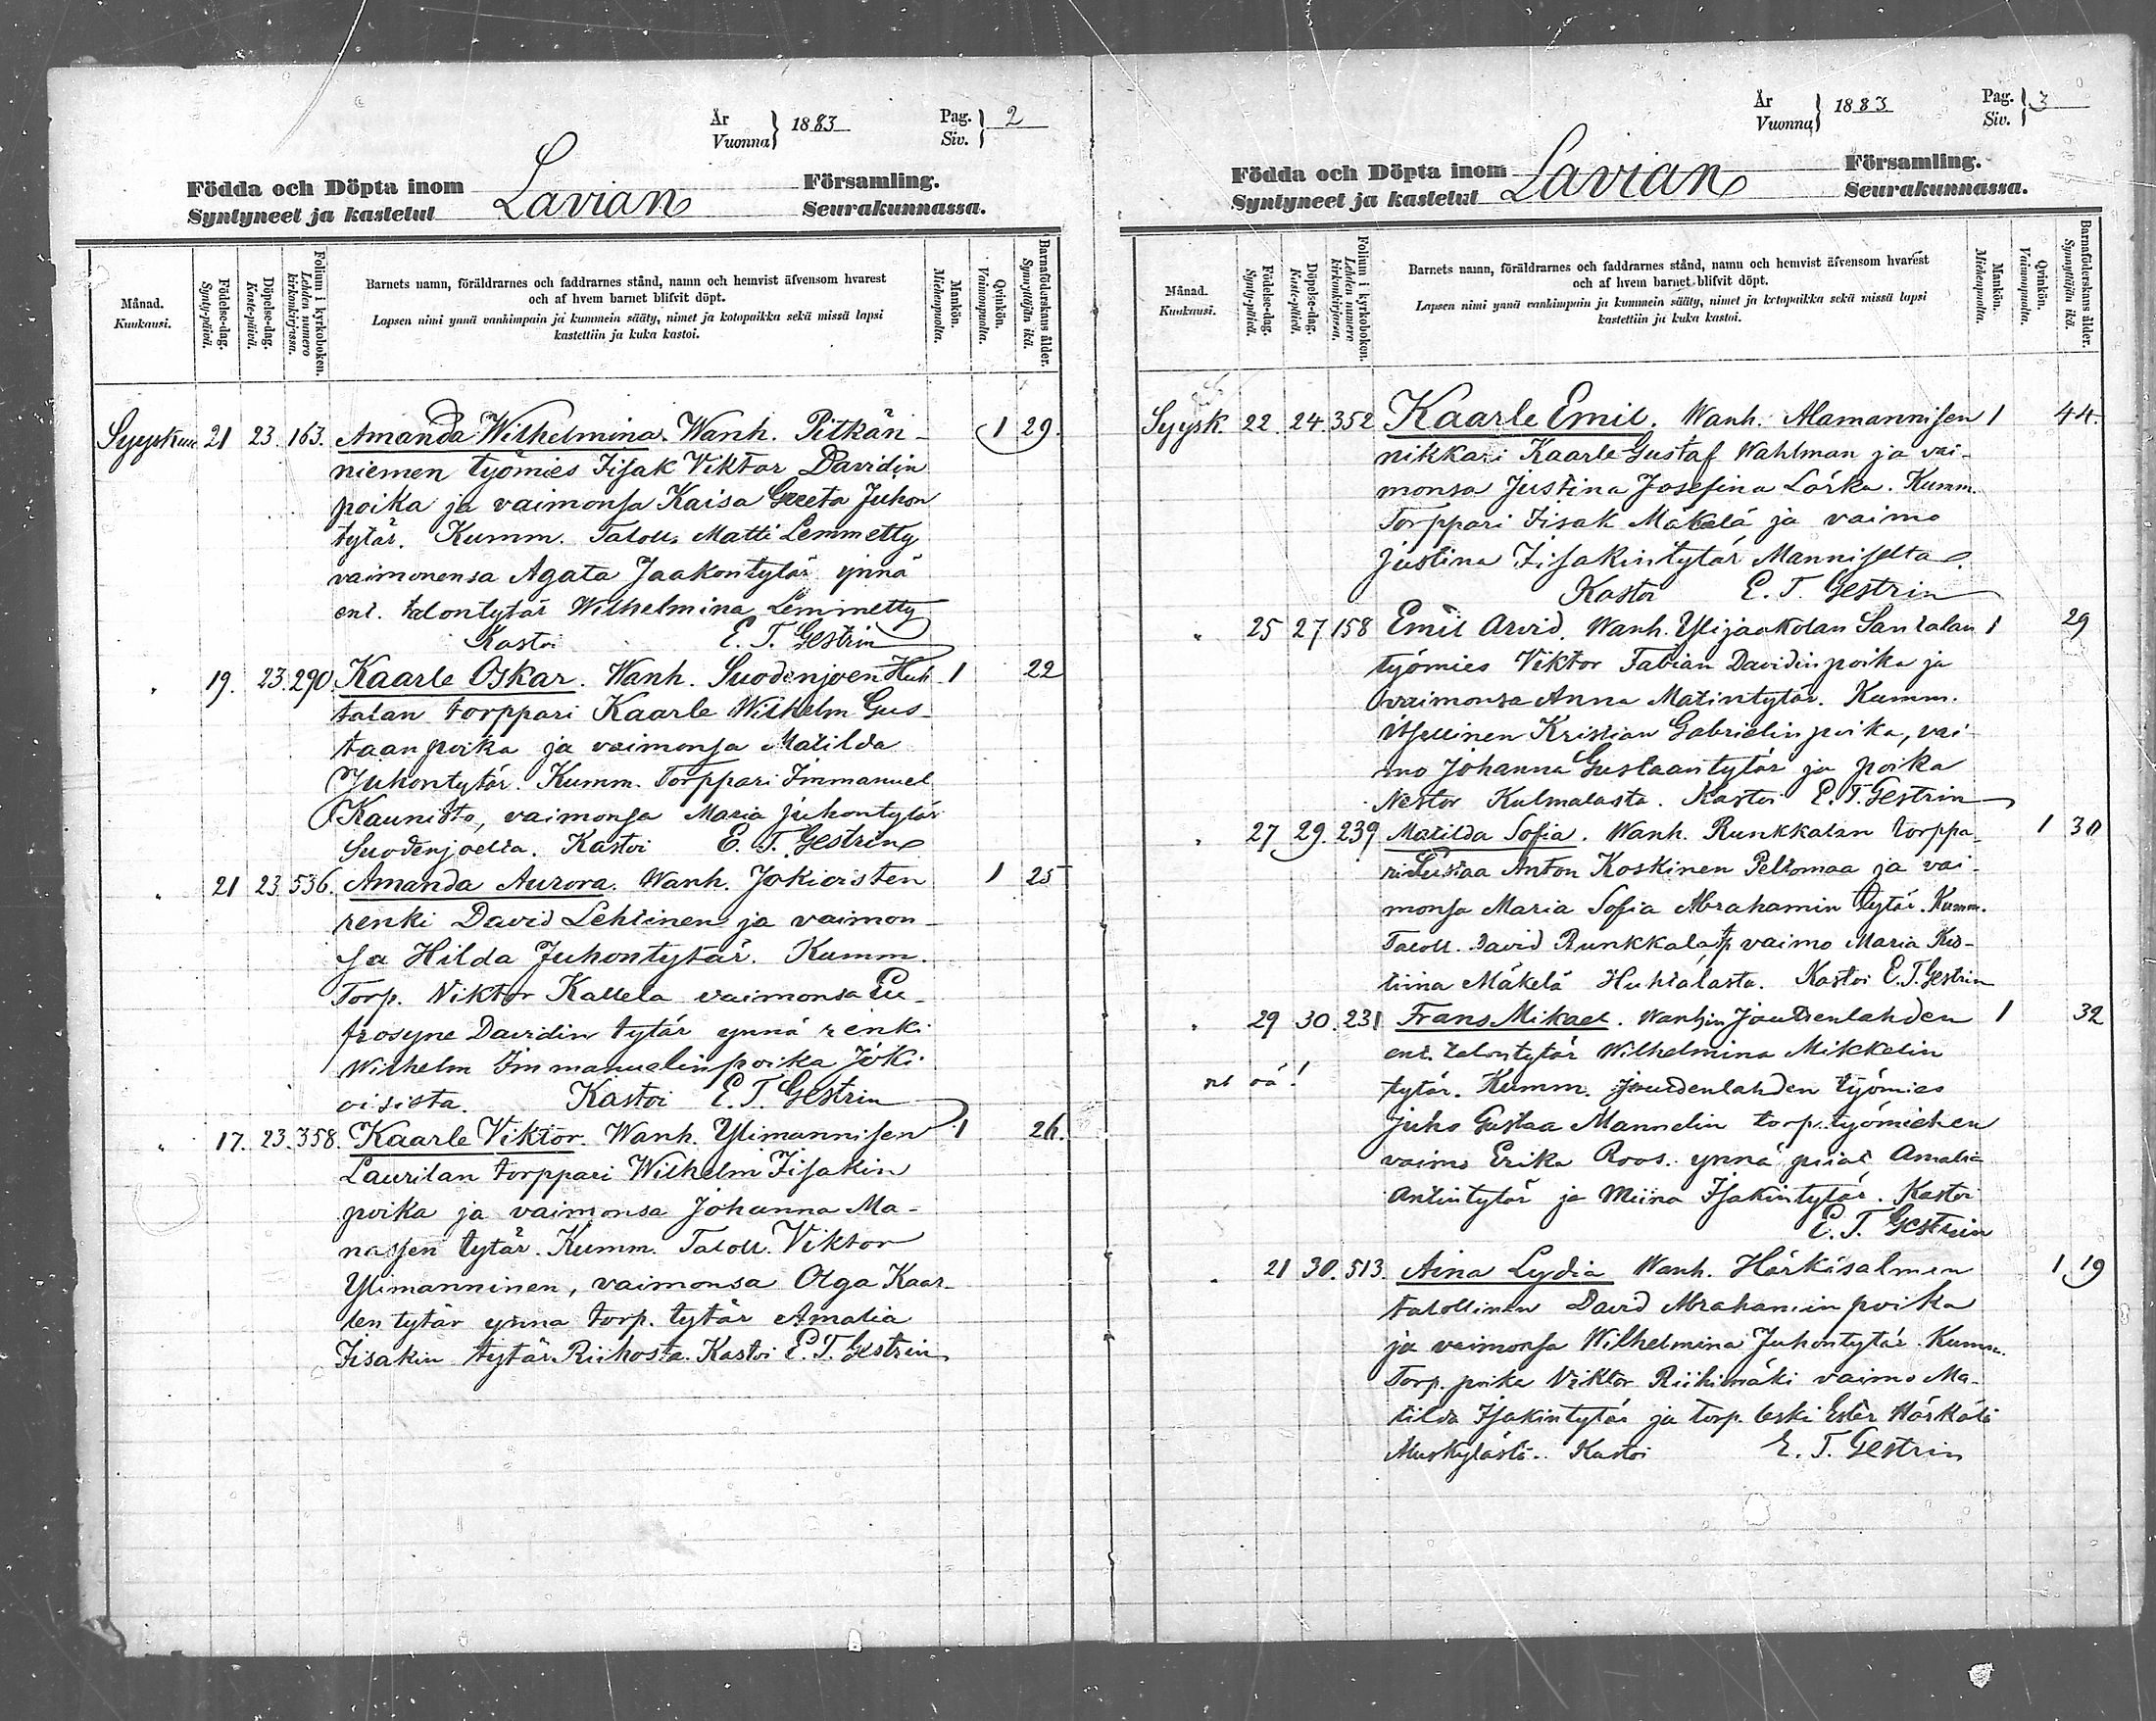 År
Vuonna } 1883
Pag.
Siv. } 2
Födda och Döpta inom
Syntyneet ja kastetut
Lavian
Församling.
Seurakunnassa.
Månad.
Kuukausi.
Födelse-dag.
Synty-päivä.
Döpelse-dag.
Kaste-päivä.
Folium i kyrkoboken.
Lehden numero kirkonkirjassa.
Barnets namn, föräldrarnes och faddrarnes stånd, namn och hemvist äfvensom hvarest
och af hvem barnet blifvit döpt.
Lapsen nimi ynnä vanhimpain ja kummein sääty, nimet ja kotopaikka sekä missä lapsi
kastettiin ja kuka kastoi.
Mankön.
Miehenpuolta.
Qvinkön.
Vaimonpuolta.
Barnaföderskans ålder.
Synnyttäjän ikä.
Syyskuu 21 23. 163. Amanda Wilhelmina. Wanh. Pitkän- 1 29.
niemen työmies Iisak Viktor Davidin
poika ja vaimonsa Kaisa Greeta Juhon
tytär. Kumm. Taloll. Matti Lemmetty
vaimonensa Agata Jaakontytär ynnä
ent. talontytär Wilhelmina Lemmetty
Kastoi E. T. Gestrin
" 19. 23. 290. Kaarle Oskar. Wanh. Suodenjoen Huh- 1 22
talan torppari Kaarle Wilhelm Gus-
taanpoika ja vaimonsa Matilda
Juhontytär. Kumm. Torppari Immanuel
Kaunisto, vaimonsa Maria Juhontytär
Suodenjoelta. Kastoi E. T. Gestrin
" 21 23. 536. Amanda Aurora. Wanh. Jokioisten 1 25
renki David Lehtinen ja vaimon-
sa Hilda Juhontytär. Kumm.
Torp. Viktor Kallela vaimonsa Eu-
frosyne Davidin tytär ynnä renki
Wilhelm Immanuelinpoika Joki-
oisista. Kastoi E. T. Gestrin
" 17. 23. 358. Kaarle Viktor. Wanh. Ylimannisen 1 26.
Laurilan torppari Wilhelm Iisakin
poika ja vaimonsa Johanna Ma-
nassen tytär. Kumm. Taloll. Viktor
Ylimanninen, vaimonsa Olga Kaar-
len tytär ynna torp. tytär Amalia
Iisakin tytär Riihosta. Kastoi E. T. Gestrin
År
Vuonna } 1883
Pag.
Siv. } 3
Födda och Döpta inom
Syntyneet ja kastetut
Lavian
Församling.
Seurakunnassa.
Månad.
Kuukausi.
Födelse-dag.
Synty-päivä.
Döpelse-dag.
Kaste-päivä.
Folium i kyrkoboken.
Lehden numero kirkonkirjassa.
Barnets namn, föräldrarnes och faddrarnes stånd, namn och hemvist äfvensom hvarest
och af hvem barnet blifvit döpt.
Lapsen nimi ynnä vanhimpain ja kummein sääty, nimet ja kotopaikka sekä missä lapsi
kastettiin ja kuka kastoi.
Mankön.
Miehenpuolta.
Qvinkön.
Vaimonpuolta.
Barnaföderskans ålder.
Synnyttäjän ikä.
Syysk. 22. 24. 352 Kaarle Emil. Wanh. Alamannisen 1 44.
nikkari Kaarle Gustaf Wahlman ja vai-
monsa Justina Josefina Lörka. Kumm.
Torppari Iisak Mäkelä ja vaimo
Justina Iisakintytär Manniselta.
Kastoi E. T. Gestrin
" 25 27 158 Emil Arvid. Wanh. Ylijaakolan Santalan 1 29
työmies Viktor Fabian Davidinpoika ja
vaimonsa Anna Matintytär. Kumm.
itsellinen Kristian Gabrielinpoika, vai-
mo Johanna Gustaantytär ja poika
Nestor Kulmalasta. Kastoi E. T. Gestrin
" 27 29. 239 Matilda Sofia. Wanh. Runkkalan torppa- 1 30
ri Kustaa Anton Koskinen Peltomaa ja vai-
monsa Maria Sofia Abrahamin tytär. Kumm.
Taloll. David Runkkala, tp vaimo Maria Kris-
tiina Mäkelä Huhtalasta. Kastoi E. T. Gestrin
" 29 30. 231 Frans Mikael. Wanhin Joutsenlahden 1 32
ent. talontytär Wilhelmina Mikkelin
tytär. Kumm. Joutsenlahden työmies
Juho Gustaa Mannelin torp. työmiehen
vaimo Erika Roos. ynnä piiat Amalia
Antintytär ja Miina Isakintytär. Kastoi
E. T. Gestrin
" 21 30. 513. Aina Lydia Wanh. Härkisalmen 1 19
talollinen David Abrahaminpoika
ja vaimonsa Wilhelmina Juhontytär. Kumm.
Torp. poika Viktor Riihimäki vaimo Ma-
tilda Isakintytär ja torp. leski Ester Härkälä
Kastoi E. T. Gestrin